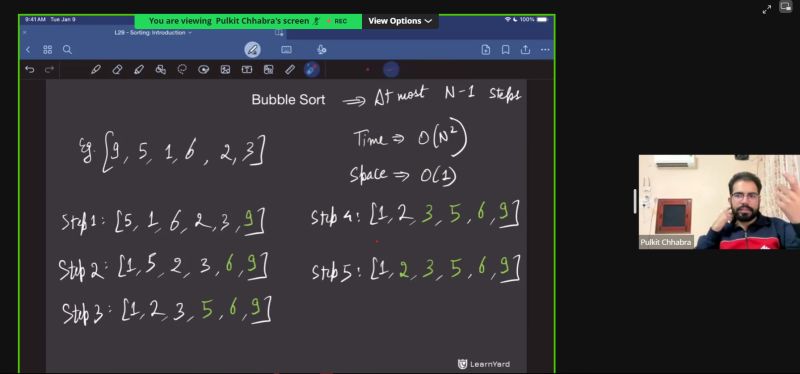 9:41 AM Tue Jan 9
You are viewing Pulkit Chhabra's screen
REC
View Options
100%
L29 - Sorting: Introduction
Bubble Sort ⇒ At most N-1 steps
Eg. [9, 5, 1, 6, 2, 3]
Time ⇒ O(N²)
Space ⇒ O(1)
Step 1: [5, 1, 6, 2, 3, 9]
Step 2: [1, 5, 2, 3, 6, 9]
Step 3: [1, 2, 3, 5, 6, 9]
Step 4: [1, 2, 3, 5, 6, 9]
Step 5: [1, 2, 3, 5, 6, 9]
LearnYard
Pulkit Chhabra